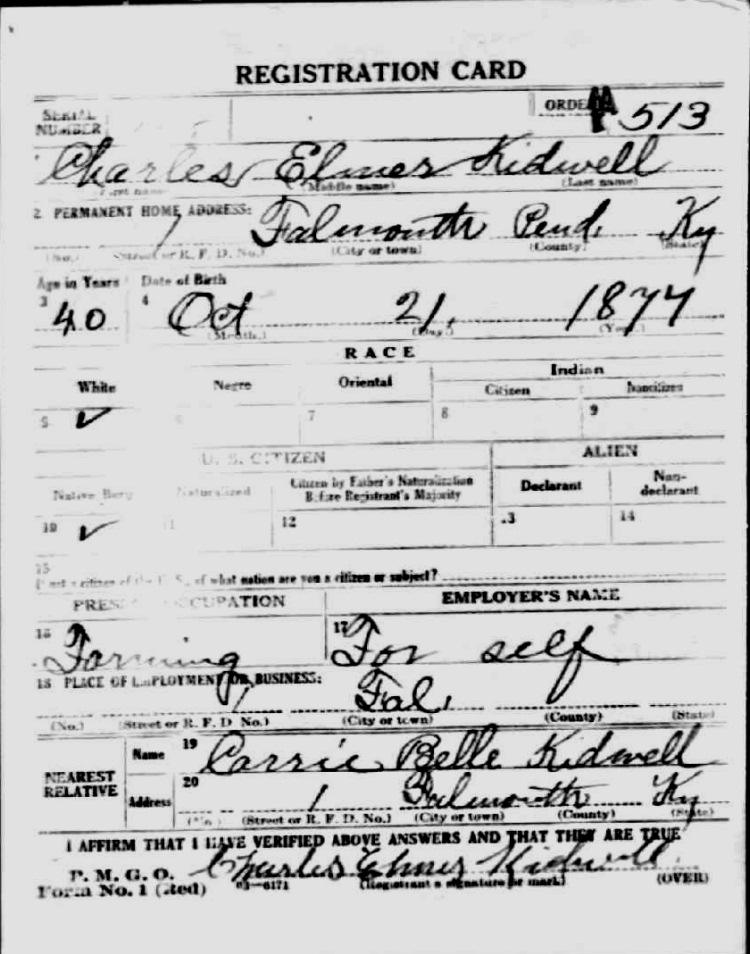 REGISTRATION CARD
SERIAL NUMBER ORDER 513
Charles Elmer Kidwell
(First name) (Middle name) (Last name)
2 PERMANENT HOME ADDRESS: 1 Falmouth Pend. Ky
(No.) (Street or R. F. D. No.) (City or town) (County) (State)
Age in Years Date of Birth
3 40 4 Oct 21, 1877
(Month.) (Day.) (Year.)
RACE
White Negro Oriental Indian
Citizen Noncitizen
5 ✓ 6 7 8 9
U. S. CITIZEN ALIEN
Native Born Naturalized Citizen by Father's Naturalization Before Registrant's Majority Declarant Non-declarant
10 ✓ 11 12 13 14
15
If not a citizen of the U. S., of what nation are you a citizen or subject?
PRESENT OCCUPATION EMPLOYER'S NAME
16 Farming 17 For self
18 PLACE OF EMPLOYMENT OR BUSINESS:
1 Fal.
(No.) (Street or R. F. D No.) (City or town) (County) (State)
NEAREST RELATIVE Name 19 Carrie Belle Kidwell
Address 20 1 Falmouth Ky
(No.) (Street or R. F. D. No.) (City or town) (County) (State)
I AFFIRM THAT I HAVE VERIFIED ABOVE ANSWERS AND THAT THEY ARE TRUE
P. M. G. O. Charles Elmer Kidwell
Form No. 1 (Red) 03—6171 (Registrant's signature or mark) (OVER)